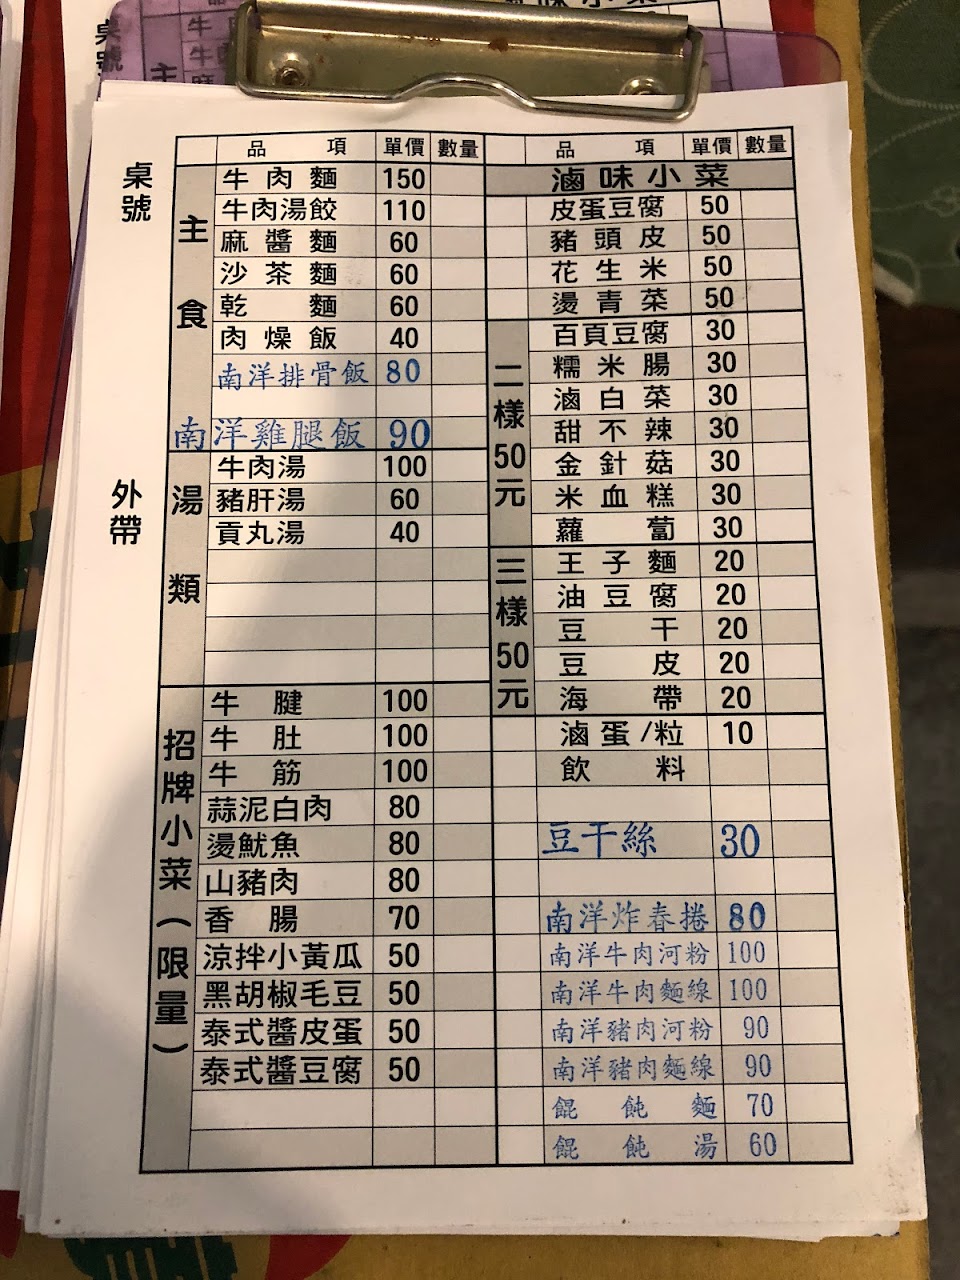 桌號
外帶
品項 單價 數量
主食
牛肉麵 150
牛肉湯餃 110
麻醬麵 60
沙茶麵 60
乾麵 60
肉燥飯 40
南洋排骨飯 80
南洋雞腿飯 90
湯類
牛肉湯 100
豬肝湯 60
貢丸湯 40
招牌小菜(限量)
牛腱 100
牛肚 100
牛筋 100
蒜泥白肉 80
燙魷魚 80
山豬肉 80
香腸 70
涼拌小黃瓜 50
黑胡椒毛豆 50
泰式醬皮蛋 50
泰式醬豆腐 50
品項 單價 數量
滷味小菜
皮蛋豆腐 50
豬頭皮 50
花生米 50
燙青菜 50
二樣50元
百頁豆腐 30
糯米腸 30
滷白菜 30
甜不辣 30
金針菇 30
米血糕 30
蘿蔔 30
三樣50元
王子麵 20
油豆腐 20
豆干 20
豆皮 20
海帶 20
滷蛋/粒 10
飲料
豆干絲 30
南洋炸春捲 80
南洋牛肉河粉 100
南洋牛肉麵線 100
南洋豬肉河粉 90
南洋豬肉麵線 90
餛飩麵 70
餛飩湯 60